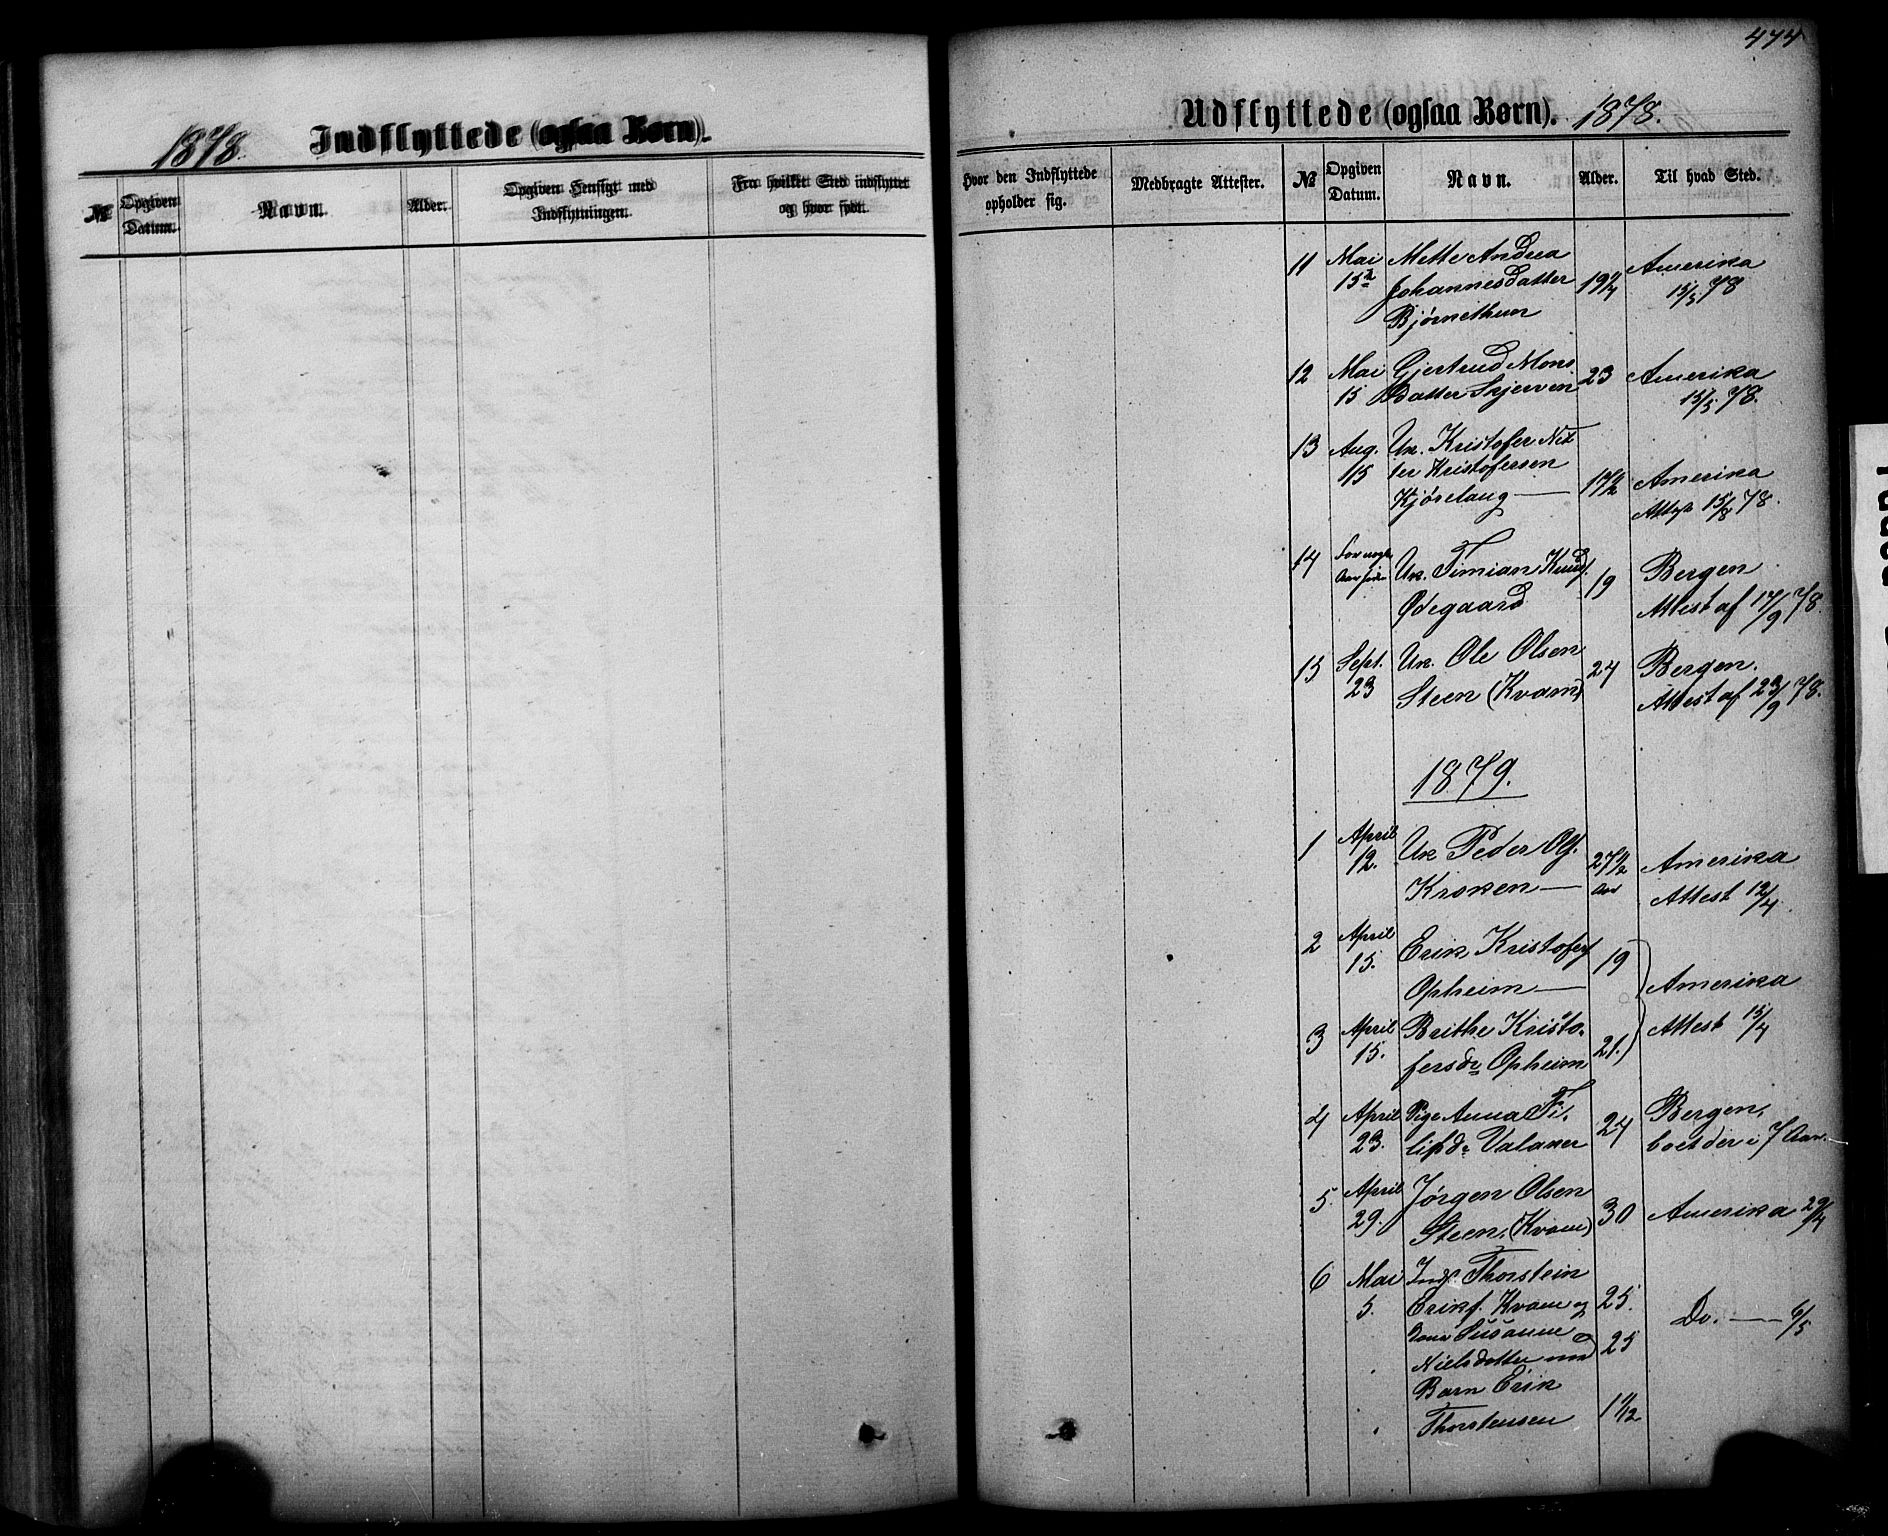 474
1878.
Indflyttede (ogsaa Børn).
№
Opgiven Datum.
Navn.
Alder.
Opgiven Hensigt med Indflytningen.
Fra hvilket Sted indflyttet og hvor født.
Udflyttede (ogsaa Børn). 1878.
Hvor den Indflyttede opholder sig.
Medbragte Attester.
№
Opgiven Datum.
Navn.
Alder.
Til hvad Sted.
11 Mai Mette Andrea
15de Johannesdatter 19 1/4 Amerika
Bjørnethun 15/5 78
12 Mai Gjertrud Mons 23 Amerika
15 datter Skjerven 15/5 78.
13 Aug. Un. Kristofer
15 Kristofersen
Kjørelaug — 17 1/2 Amerika
Attest 15/8 78.
14 Un. Timian Knuds. 19 Bergen
Ødegaard Attest af 17/9 78.
15 Sept. Un. Ole Olsen 24 Bergen.
23 Steen (Kvam) Attest af 23/9 78.
1879.
1 April Un Peder Ols. 27 1/2 Amerika
12. Kroken — Aar Attest 12/4.
2 April Erik Kristofers 19
15. Opheim — Amerika
3 April Brithe Kristo- Attest 15/4
15. fersdr Opheim 21.
4 April Pige Anna Fi- 24 Bergen,
23. lipdr Valaker boet der i 7 Aar.
5. April Jørgen Olsen 30 Amerika 29/4
29. Steen, (Kvam)
6 Mai Inds. Thorstein
5. Eriks. Kvam og 25. Do. — 6/5
Kone Susanne
Nielsdatter med 25
Barn Erik
Thorstensen 1 1/12